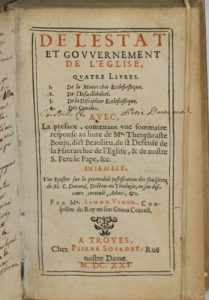 DE L'ESTAT
ET GOVVERNEMENT
DE L'EGLISE,
QVATRE LIVRES.
1. De la Monarchie Ecclesiastique.
2. De l'Infaillibilité.
3. De la Discipline Ecclesiastique.
4. Des Conciles.
AVEC,
La preface, contenant vne sommaire
response au liure de Me. Theophraste
Bouju, dict Beaulieu, de la Defense de
la Hierarchie de l'Eglise, & de nostre
S. Pere le Pape, &c.
ENSEMBLE,
Vne Epistre sur la pretenduë Iustification des
de M. C. Durand, Docteur en Theologie, en son
intitulé, Aduis, &c.
Par Me. SIMON VIGOR, Con-
seiller du Roy en son Grand Conseil.
A TROYES,
Chez PIERRE SOVRDET, Ruë
nostre Dame.
M. DC. XXI.